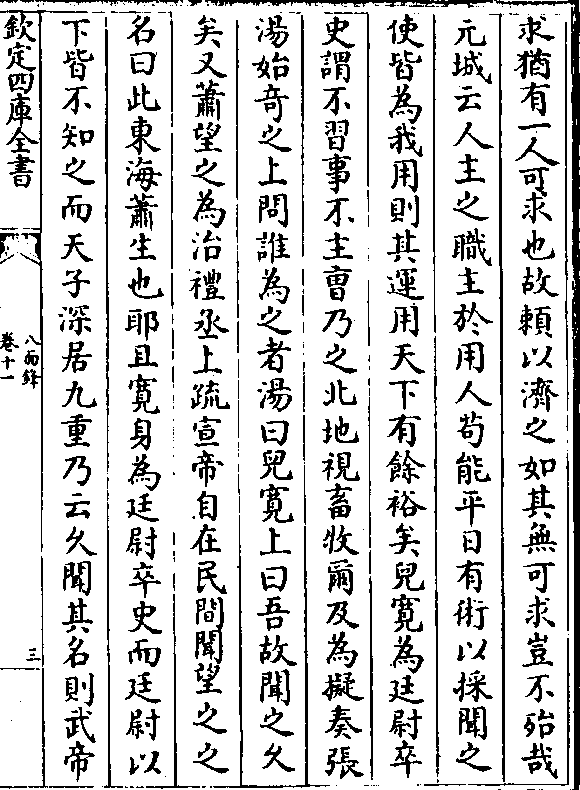 求猶有一人可求也故頼以濟之如其無可求豈不殆哉
元城云人主之職主於用人苟能平日有術以採聞之
使皆為我用則其運用天下有餘裕矣兒寛為廷尉卒
史謂不習事不主曹乃之北地視畜牧爾及為擬奏張
湯始奇之上問誰為之者湯曰兒寛上曰吾故聞之久
矣又蕭望之為治禮丞上疏宣帝自在民間聞望之之
名曰此東海蕭生也耶且寛身為廷尉卒史而廷尉以
下皆不知之而天子深居九重乃云久聞其名則武帝
欽定四庫全書
八面鋒
卷十一
三